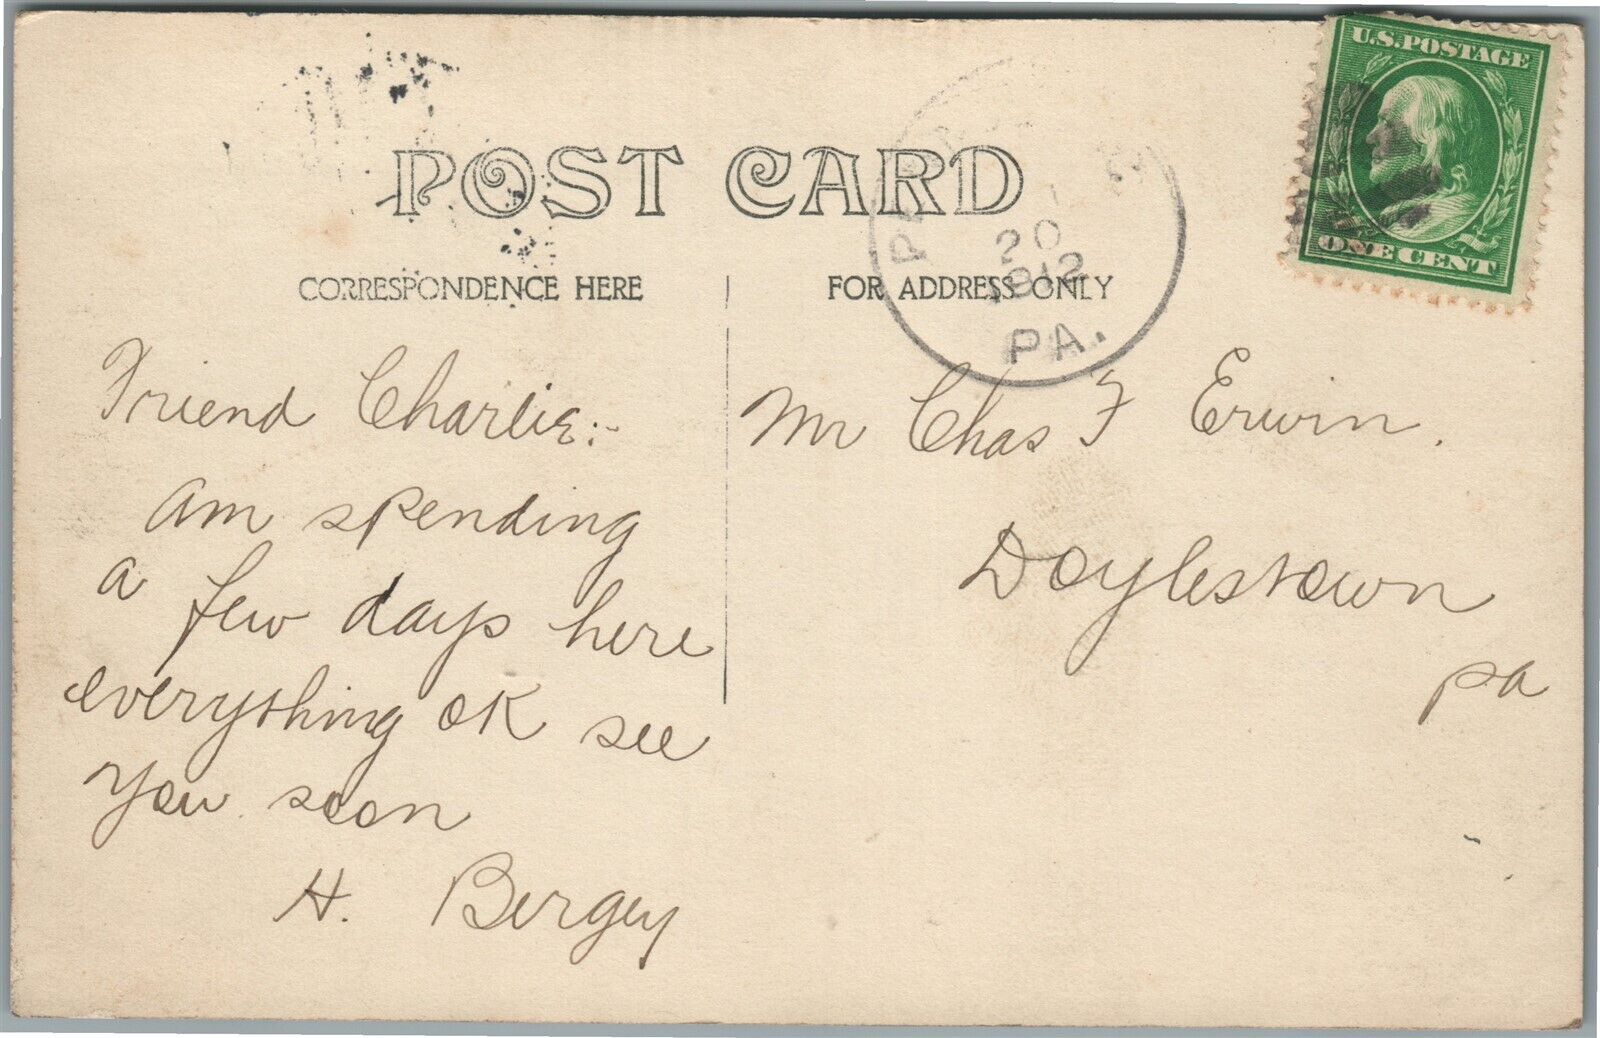 U.S. POSTAGE
ONE CENT
POST CARD
20
1912
PA.
CORRESPONDENCE HERE
FOR ADDRESS ONLY
Friend Charlie:-
am spending
a few days here
everything OK see
you soon
H. Bergey
Mr Chas F Erwin.
Doylestown
Pa